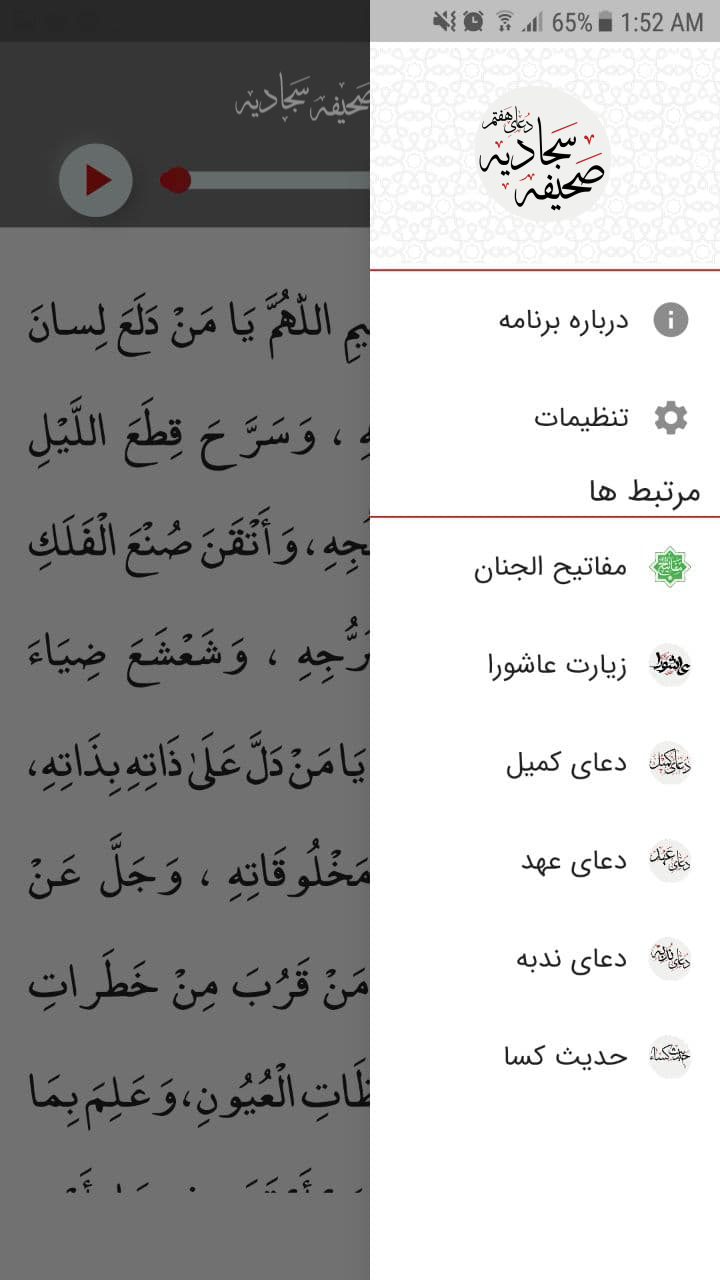 65% 1:52 AM
صحیفه سجادیه
دعای هفتم
صحیفه سجادیه
درباره برنامه
تنظیمات
مرتبط ها
مفاتیح الجنان
زیارت عاشورا
دعای کمیل
دعای عهد
دعای ندبه
حدیث کسا
اللّٰهُمَّ يَا مَنْ دَلَعَ لِسانَ
، وَسَرَّحَ قِطَعَ اللَّيْلِ
، وَأَتْقَنَ صُنْعَ الْفَلَكِ
، وَشَعْشَعَ ضِيَاءَ
يَا مَنْ دَلَّ عَلَىٰ ذَاتِهِ بِذَاتِهِ،
مَخْلُوقَاتِهِ ، وَجَلَّ عَنْ
مَنْ قَرُبَ مِنْ خَطَراتِ
الْعُيُونِ، وَعَلِمَ بِمَا